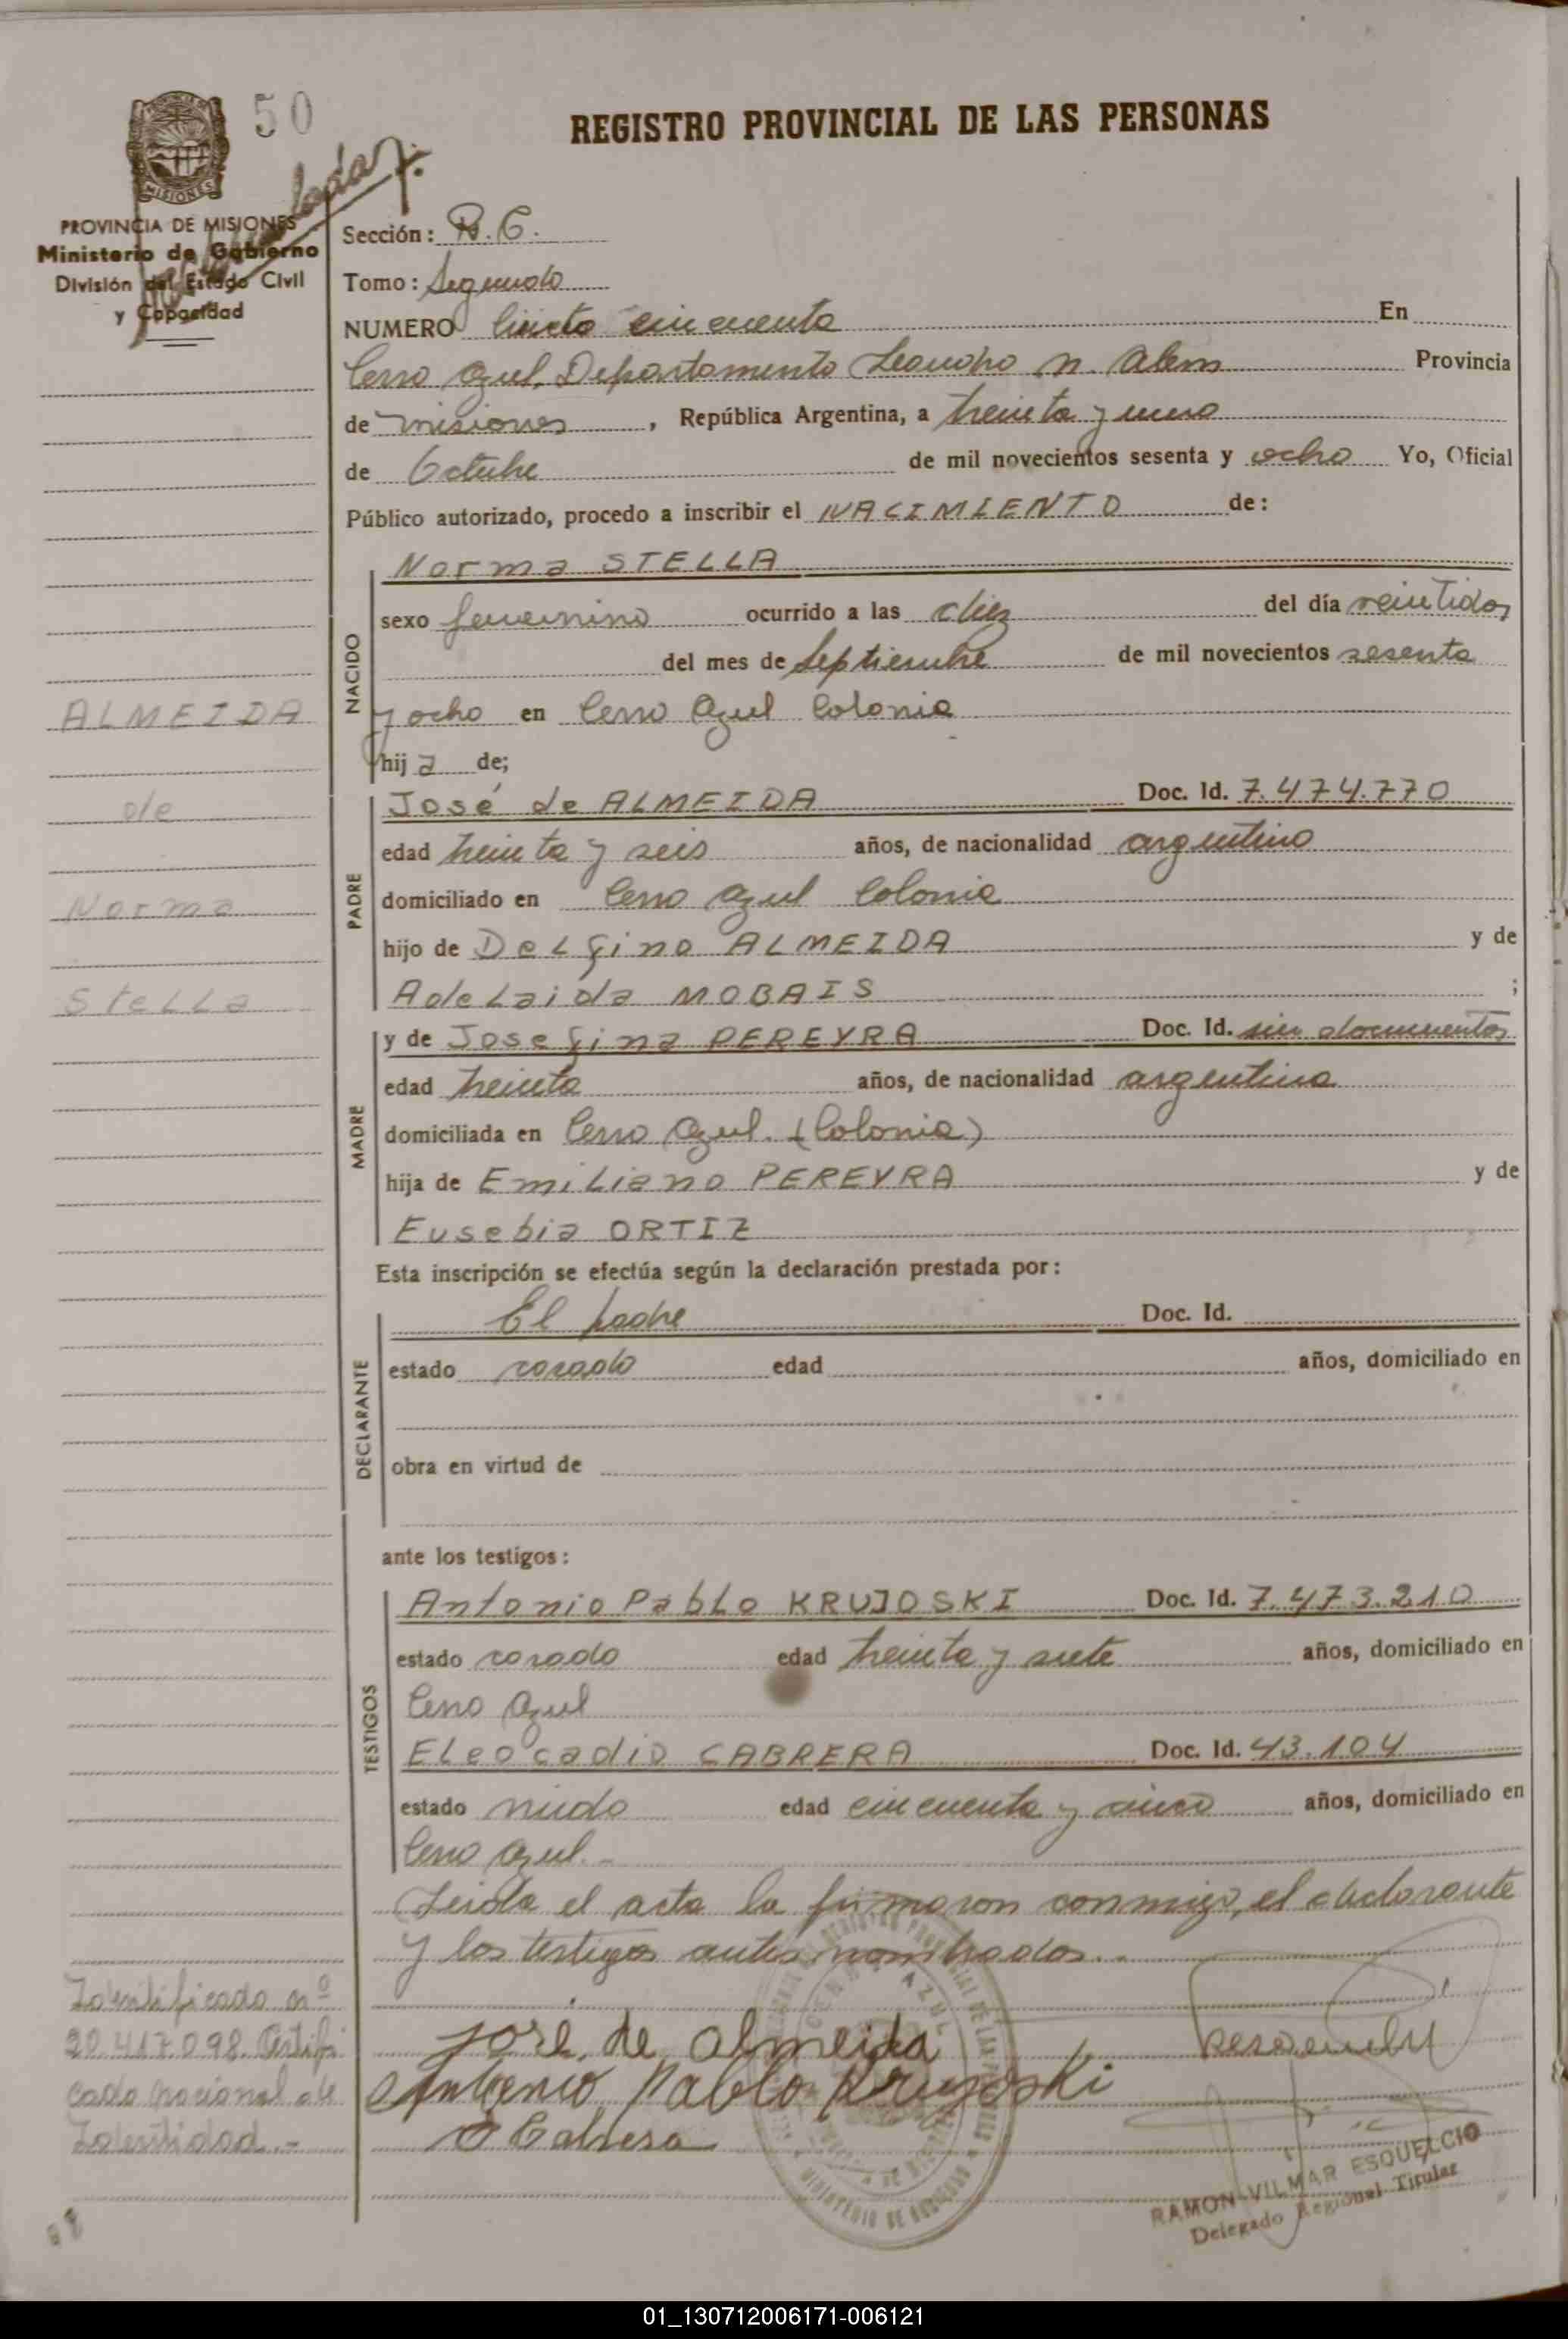 50
REGISTRO PROVINCIAL DE LAS PERSONAS
MISIONES
PROVINCIA DE MISIONES
Ministerio de Gobierno
División del Estado Civil
y Capacidad
Sección: R.C.
Tomo: Segundo
NUMERO Ciento cincuenta En
Cerro Azul, Departamento Leandro N. Alem Provincia
de misiones, República Argentina, a treinta y uno
de Octubre de mil novecientos sesenta y ocho Yo, Oficial
Público autorizado, procedo a inscribir el NACIMIENTO de:
NACIDO
Norma STELLA
sexo femenino ocurrido a las diez del día veintidos
del mes de Septiembre de mil novecientos sesenta
y ocho en Cerro Azul Colonia
hij a de;
ALMEIDA
de
Norma
Stella
PADRE
José de ALMEIDA Doc. Id. 7.474.770
edad treinta y seis años, de nacionalidad argentino
domiciliado en Cerro Azul Colonia
hijo de Delfino ALMEIDA y de
Adelaida MOBAIS ;
MADRE
y de Josefina PEREYRA Doc. Id. sin documentos
edad treinta años, de nacionalidad argentina
domiciliada en Cerro Azul. (Colonia)
hija de Emiliano PEREYRA y de
Eusebia ORTIZ
Esta inscripción se efectúa según la declaración prestada por:
DECLARANTE
El padre Doc. Id.
estado casado edad años, domiciliado en
obra en virtud de
ante los testigos:
TESTIGOS
Antonio Pablo KRUJOSKI Doc. Id. 7.473.210
estado casado edad treinta y siete años, domiciliado en
Cerro Azul
Eleocadio CABRERA Doc. Id. 43.104
estado viudo edad cincuenta y cinco años, domiciliado en
Cerro Azul.-
Leida el acta la firmaron conmigo, el declarante
y los testigos antes nombrados.-
José de Almeida
Antonio Pablo Krujoski
Cabrera
Identificado nº
20.417.098. Certifi
cado nacional de
Identidad.-
RAMON VILMAR ESQUELCIO
Delegado Regional Titular
01_130712006171-006121